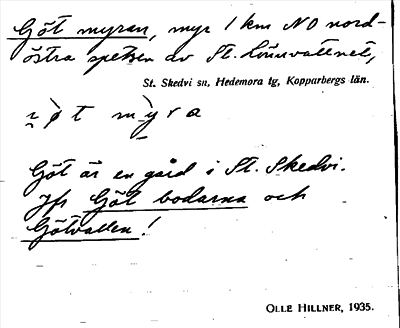 Göt myran, myr 1 km NO nord-
östra spetsen av St.
St. Skedvi sn, Hedemora tg, Kopparbergs län.
Göt är en gård i St. Skedvi.
Jfr Göt bodarna och
Götvallen!
OLLE HILLNER, 1935.